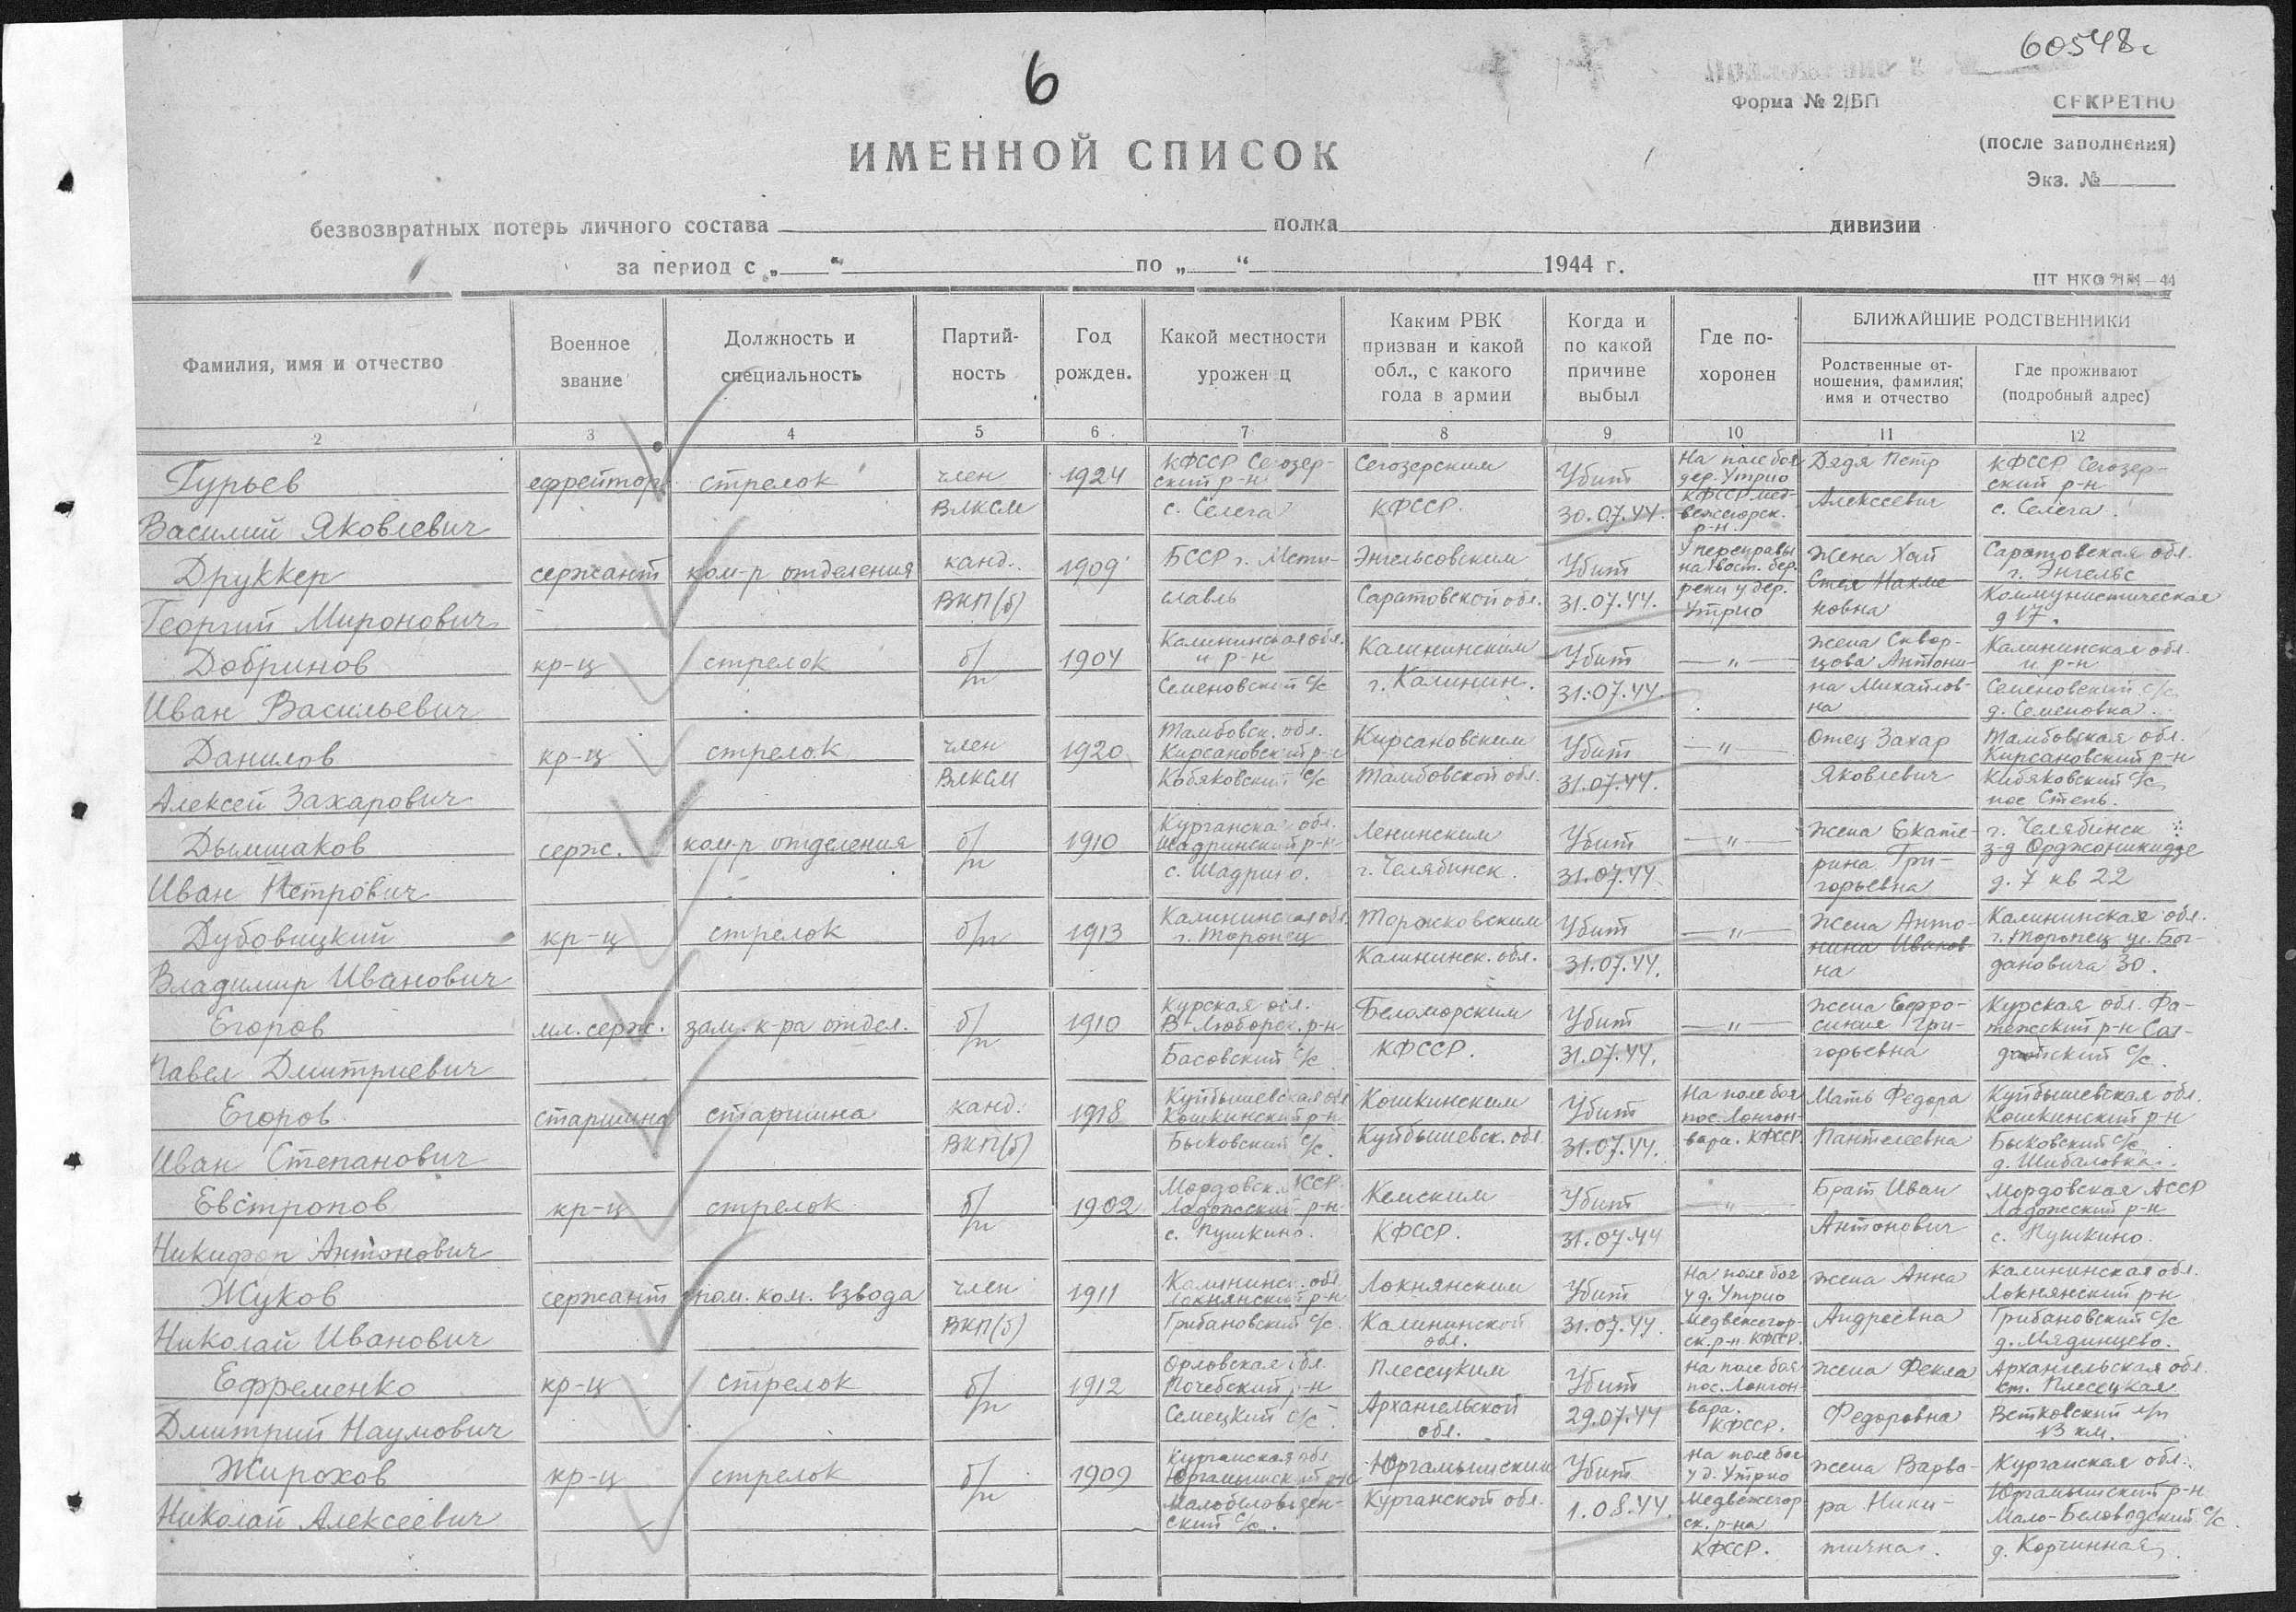 60548с
6
Форма № 2/БП
СЕКРЕТНО
(после заполнения)
Экз. №
ИМЕННОЙ СПИСОК
безвозвратных потерь личного состава полка дивизии
за период с „ “ по „ “ 1944 г.
Фамилия, имя и отчество
Военное звание
Должность и специальность
Партий-ность
Год рожден.
Какой местности урожен ц
Каким РВК призван и какой обл., с какого года в армии
Когда и по какой причине выбыл
Где по-хоронен
БЛИЖАЙШИЕ РОДСТВЕННИКИ
Родственные от-ношения, фамилия, имя и отчество
Где проживают (подробный адрес)
2 3 4 5 6 7 8 9 10 11 12
Гурьев Василий Яковлевич ефрейтор стрелок член ВЛКСМ 1924 КФССР Сегозер-ский р-н с. Селега Сегозерским КФССР. Убит 30.07.44. На поле боя дер. Утрио КФССР Мед-вежегорск. р-н. Дядя Петр Алексеевич КФССР Сегозер-ский р-н с. Селега.
Друккер Георгий Миронович сержант ком-р отделения канд. ВКП(б) 1909 БССР г. Мсти-славль Энгельсовским Саратовской обл. Убит 31.07.44. У переправы на вост. бер. реки у дер. Утрио Жена Хай Нахме новна Саратовская обл. г. Энгельс Коммунистическая д 17.
Добринов Иван Васильевич кр-ц стрелок б/п 1904 Калининская обл. и р-н Семеновский с/с Калининским г. Калинин. Убит 31.07.44. — „ — Жена Сквор-цова Антони-на Михайлов-на Калининская обл. и р-н Семеновский с/с д. Семеновка.
Данилов Алексей Захарович кр-ц стрелок член ВЛКСМ 1920 Тамбовск. обл. Кирсановский р-н Кобяковский с/с Кирсановским Тамбовской обл. Убит 31.07.44. — „ — Отец Захар Яковлевич Тамбовская обл. Кирсановский р-н Кобяковский с/с пос Степь.
Дымшаков Иван Петрович серж. ком-р отделения б/п 1910 Курганская обл. Шадринский р-н с. Шадрино. Ленинским г. Челябинск. Убит 31.07.44. — „ — Жена Екате-рина Гри-горьевна г. Челябинск з-д Орджоникидзе д. 7 кв 22
Дубовицкий Владимир Иванович кр-ц стрелок б/п 1913 Калининская обл. г. Торопец Торжковским Калининск. обл. Убит 31.07.44. — „ — Жена Анто-нина Иванов-на Калининская обл. г. Торопец ул. Бог-дановича 30.
Егоров Павел Дмитриевич мл. серж. зам. к-ра отдел. б/п 1910 Курская обл. В-Люборск. р-н Басовский с/с Беломорским КФССР. Убит 31.07.44. — „ — Жена Ефро-синия Гри-горьевна Курская обл. Фа-тежский р-н с/с.
Егоров Иван Степанович старшина старшина канд. ВКП(б) 1918 Куйбышевская обл Кошкинский р-н Быковский с/с. Кошкинским Куйбышевск. обл. Убит 31.07.44. На поле боя пос. Лонгон-вара. КФССР. Мать Федора Пантелеевна Куйбышевская обл. Кошкинский р-н Быковский с/с д. Шибаловка.
Евстропов Никифор Антонович кр-ц стрелок б/п 1902 Мордовск. АССР Ладожский р-н с. Пушкино. Кемским КФССР. Убит 31.07.44 — „ — Брат Иван Антонович Мордовская АССР Ладожский р-н с. Пушкино.
Жуков Николай Иванович сержант пом. ком. взвода член ВКП(б) 1911 Калининс. обл. Локнянский р-н Грибановский с/с. Локнянским Калининской обл. Убит 31.07.44. На поле боя у д. Утрио Медвежегор-ск. р-н КФССР. Жена Анна Андреевна Калининская обл. Локнянский р-н Грибановский с/с д. Мядинцево.
Ефременко Дмитрий Наумович кр-ц стрелок б/п 1912 Орловская обл Почебский р-н Семецкий с/с. Плесецким Архангельской обл. Убит 29.07.44 На поле боя пос. Лонгон-вара. КФССР. Жена Фекла Федоровна Архангельская обл. ст. Плесецкая Ветковский 13 км.
Жирохов Николай Алексеевич кр-ц стрелок б/п 1909 Курганская обл Юргамышский р-н Малобеловоден-ский с/с. Юргамышским Курганской обл. Убит 1.08.44. На поле боя у д. Утрио Медвежегор-ск. р-на КФССР. Жена Варва-ра Ники-тична. Курганская обл. Юргамышский р-н Мало-Беловодский с/с д. Корчинная